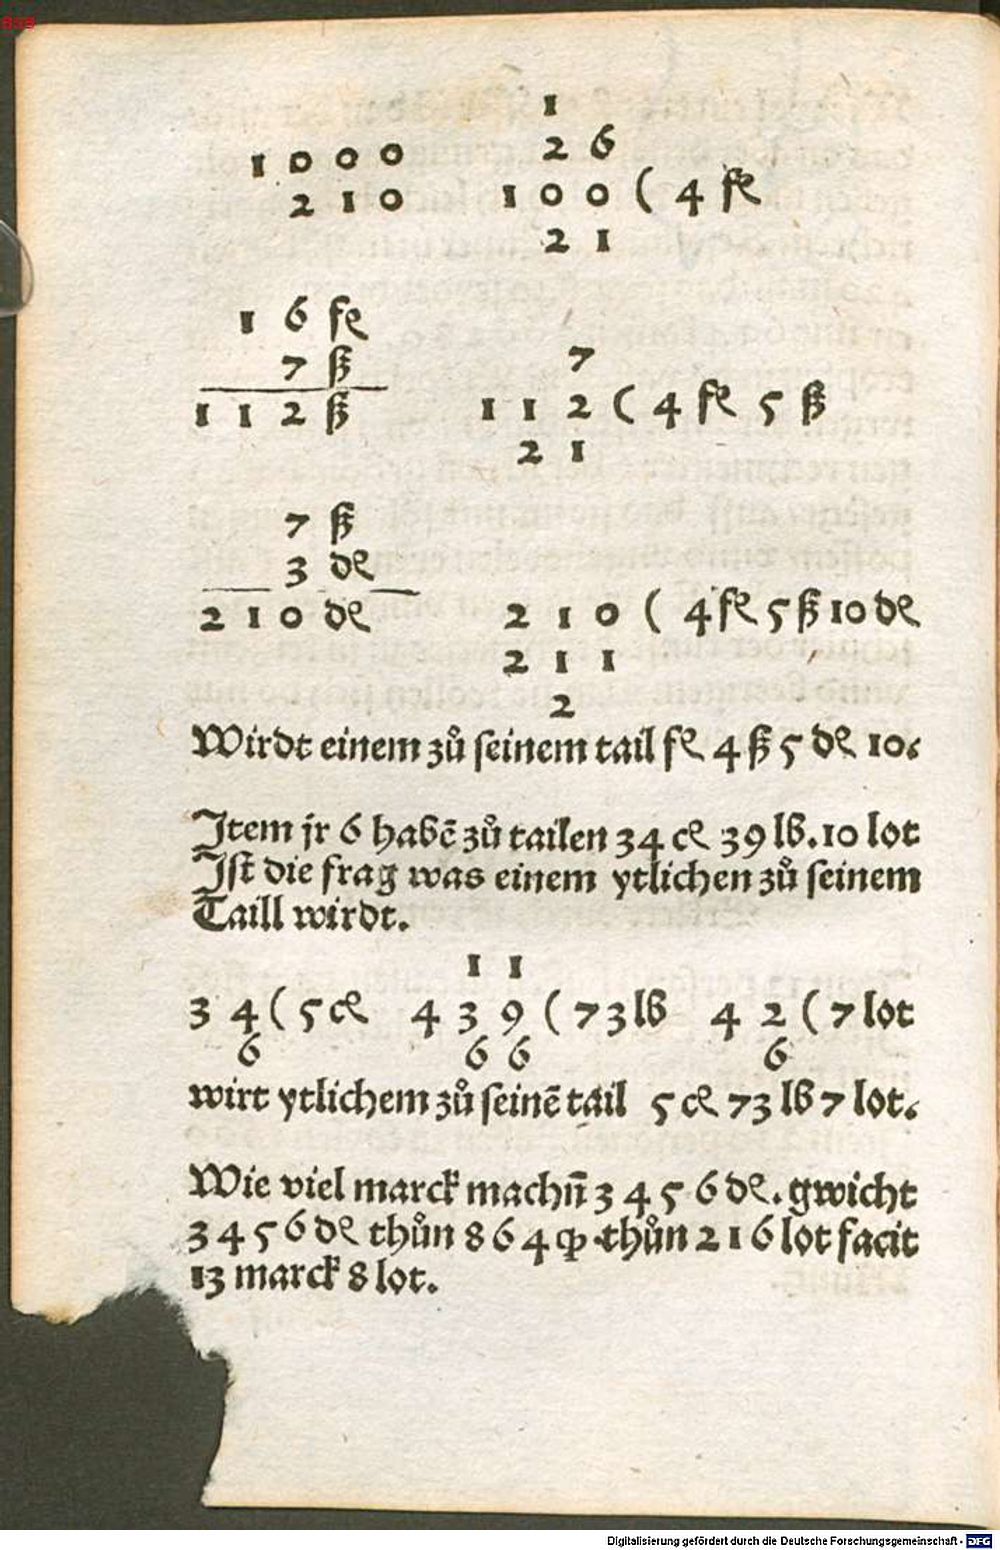 1
1 0 0 0   2 6
2 1 0   1 0 0 ( 4 fł
2 1
1 6 fł
7 ß   7
1 1 2 ß   1 1 2 ( 4 fł 5 ß
2 1
7 ß
3 dł
2 1 0 dł   2 1 0 ( 4 fł 5 ß 10 dł
2 1 1
2
Wirdt einem zů seinem tail fł 4 ß 5 dł 10.
Item jr 6 habē zů tailen 34 cł 39 lb. 10 lot
Ist die frag was einem ytlichen zů seinem
Taill wirdt.
1 1
3 4 ( 5 cł   4 3 9 ( 73 lb   4 2 ( 7 lot
6   6 6   6
wirt ytlichem zů seinē tail 5 cł 73 lb 7 lot.
Wie viel marck machn̄ 3 4 5 6 dł. gwicht
3 4 5 6 dł thůn 8 6 4 qp thůn 2 1 6 lot facit
13 marck 8 lot.
Digitalisierung gefördert durch die Deutsche Forschungsgemeinschaft - DFG